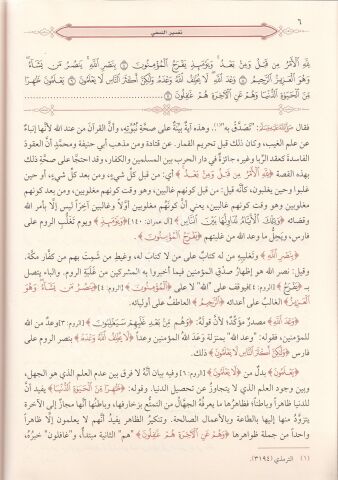 ٦
تفسير النسفي
لِلَّهِ الْأَمْرُ مِن قَبْلُ وَمِنْ بَعْدُ وَيَوْمَئِذٍ يَفْرَحُ الْمُؤْمِنُونَ ۝ بِنَصْرِ اللَّهِ يَنصُرُ مَن يَشَاءُ
وَهُوَ الْعَزِيزُ الرَّحِيمُ ۝ وَعْدَ اللَّهِ لَا يُخْلِفُ اللَّهُ وَعْدَهُ وَلَكِنَّ أَكْثَرَ النَّاسِ لَا يَعْلَمُونَ ۝ يَعْلَمُونَ ظَاهِرًا
مِنَ الْحَيَاةِ الدُّنْيَا وَهُمْ عَنِ الْآخِرَةِ هُمْ غَافِلُونَ ۝
فقال ﷺ: "تَصَدَّقْ به"(١). وهذه آيةٌ بيِّنَةٌ على صحَّةِ نُبوَّتِه، وأنَّ القرآنَ من عند الله لأنَّها إنباءٌ
عن علم الغيب، وكان ذلك قبل تحريم القمار. عن قتادة ومن مذهب أبي حنيفة ومحمَّدٍ أنَّ العقودَ
الفاسدةَ كعقد الرِّبا وغيره جائزةٌ في دار الحرب بين المسلمين والكفار، وقد احتجَّا على صحَّةِ ذلك
بهذه القصة ﴿لِلَّهِ الْأَمْرُ مِن قَبْلُ وَمِنْ بَعْدُ﴾ أي: من قبل كلِّ شيءٍ، ومن بعد كلِّ شيءٍ، أو حين
غلبوا وحين يغلبون، كأنَّه قيل: من قبل كونهم غالبين، وهو وقت كونهم مغلوبين، ومن بعد كونهم
مغلوبين، وهو وقت كونهم غالبين، يعني أنَّ كونهم مغلوبين أوَّلًا وغالبين آخرًا ليس إلا بأمر الله
وقضائه ﴿وَتِلْكَ الْأَيَّامُ نُدَاوِلُهَا بَيْنَ النَّاسِ﴾ [آل عمران: ١٤٠] ﴿وَيَوْمَئِذٍ﴾ ويوم تَغْلِبُ الروم على
فارس، ويحلُّ ما وعد الله من غلبتهم ﴿يَفْرَحُ الْمُؤْمِنُونَ﴾.
﴿بِنَصْرِ اللَّهِ﴾ وتغليبِه من له كتابٌ على من لا كتاب له، وغيظِ من شَمِتَ بهم من كفار مكَّة.
وقيل: نصر الله هو إظهارُ صدقِ المؤمنين فيما أخبروا به المشركين من غَلَبَةِ الروم. والباء يتصل
بـ﴿يَفْرَحُ﴾ [الروم: ٤] فيوقف على "الله" لا على ﴿الْمُؤْمِنُونَ﴾ [الروم: ٤] ﴿يَنصُرُ مَن يَشَاءُ وَهُوَ
الْعَزِيزُ﴾ الغالب على أعدائه ﴿الرَّحِيمُ﴾ العاطف على أوليائه.
﴿وَعْدَ اللَّهِ﴾ مصدرٌ مؤكِّدٌ؛ لأن قولَهُ: ﴿وَهُم مِّنْ بَعْدِ غَلَبِهِمْ سَيَغْلِبُونَ﴾ [الروم: ٣] وعدٌ من الله
للمؤمنين، فقوله: "وعد الله" بمنزلة: وعدَ اللهُ المؤمنين وعدًا ﴿لَا يُخْلِفُ اللَّهُ وَعْدَهُ﴾ بنصر الروم على
فارس ﴿وَلَكِنَّ أَكْثَرَ النَّاسِ لَا يَعْلَمُونَ﴾ ذلك.
﴿يَعْلَمُونَ﴾ بدلٌ من ﴿لَا يَعْلَمُونَ﴾ وفيه بيان أنَّه لا فرق بين عدم العلم الذي هو الجهل،
وبين وجود العلم الذي لا يتجاوز عن تحصيل الدنيا. وقوله: ﴿ظَاهِرًا مِنَ الْحَيَاةِ الدُّنْيَا﴾ يفيد أنَّ
للدنيا ظاهرًا وباطنًا؛ فظاهرُها ما يعرفُهُ الجهَّالُ من التمتُّع بزخارفها، وباطنُها أنَّها مجازٌ إلى الآخرة
يتزوَّدُ منها إليها بالطاعة وبالأعمال الصالحة. وتنكيرُ الظاهر يفيد أنَّهم لا يعلمون إلَّا ظاهرًا
واحدًا من جملة ظواهرها ﴿وَهُمْ عَنِ الْآخِرَةِ هُمْ غَافِلُونَ﴾ "هم" الثانية مبتدأٌ، و"غافلون" خبرُهُ،
(١) الترمذي (٣١٩٤)